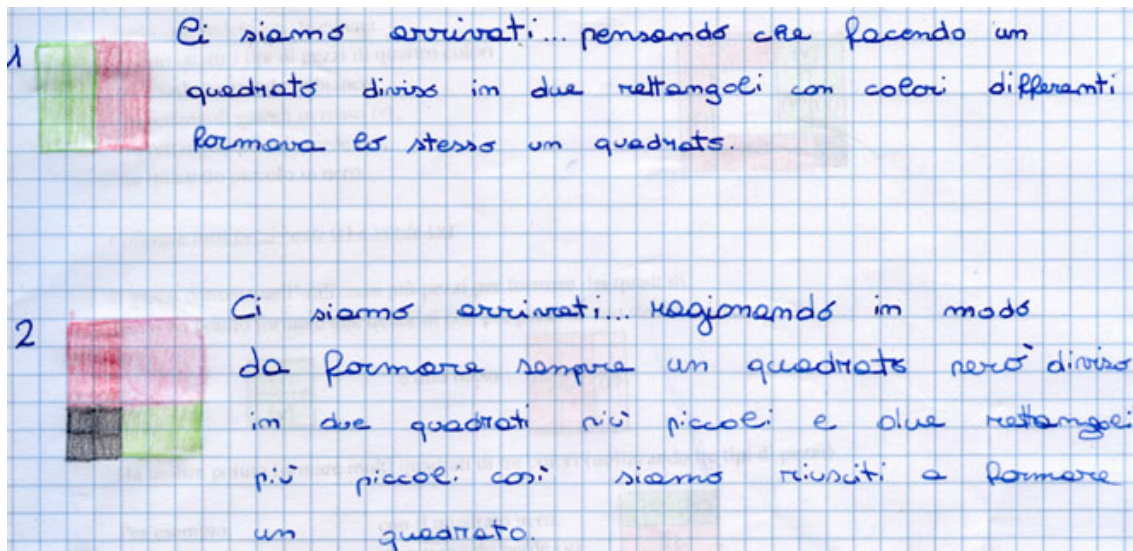 1 Ci siamo arrivati... pensando che facendo un
quadrato diviso in due rettangoli con colori differenti
formava lo stesso un quadrato.
2 Ci siamo arrivati... ragionando in modo
da formare sempre un quadrato però diviso
in due quadrati più piccoli e due rettangoli
più piccoli così siamo riusciti a formare
un quadrato.